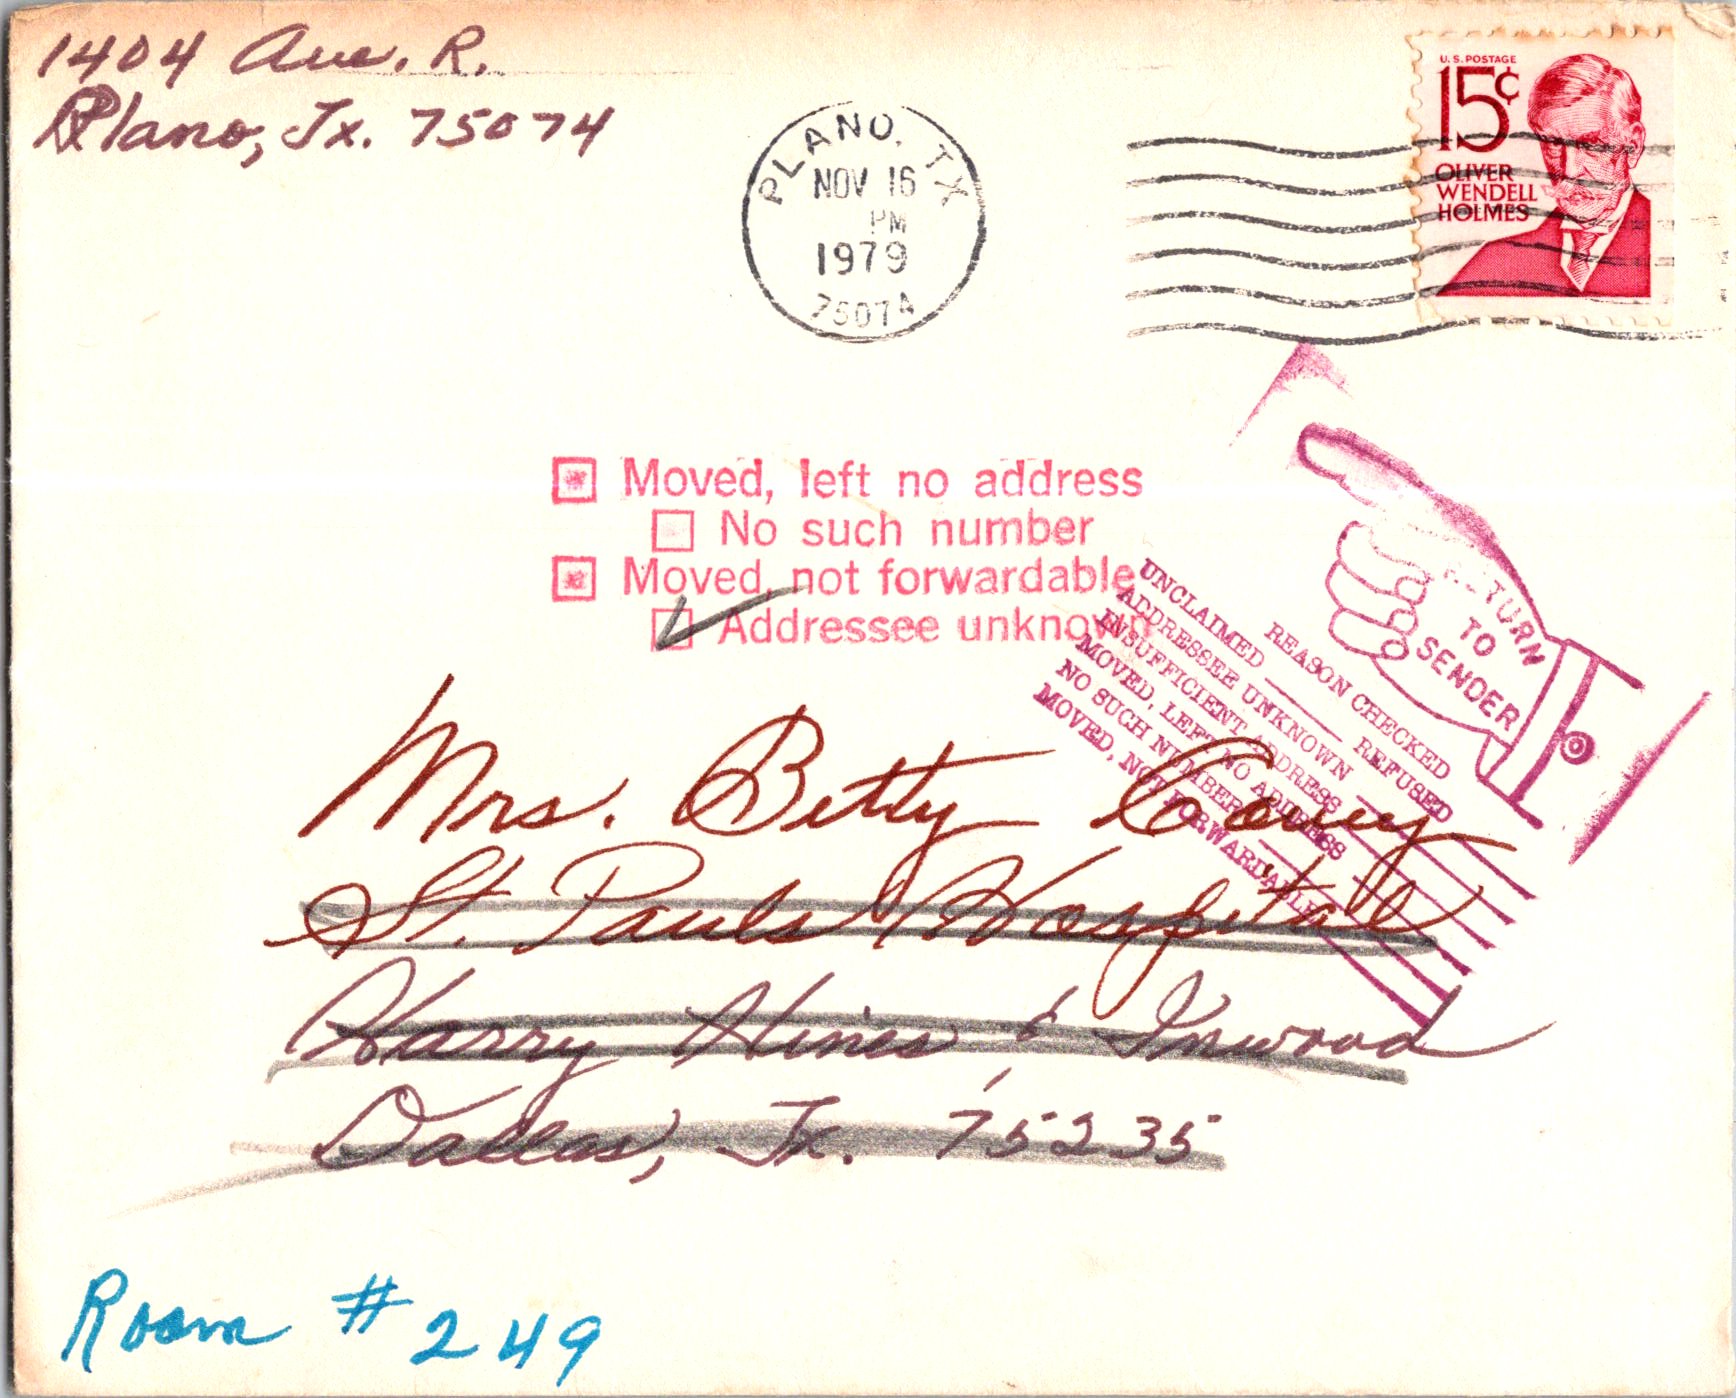 1404 Ave. R.
Plano, Tx. 75074
PLANO, TX
NOV 16
PM
1979
75074
U.S. POSTAGE
15¢
OLIVER
WENDELL
HOLMES
Moved, left no address
No such number
Moved, not forwardable
Addressee unknown
RETURN
TO
SENDER
REASON CHECKED
UNCLAIMED REFUSED
ADDRESSEE UNKNOWN
INSUFFICIENT ADDRESS
MOVED, LEFT NO ADDRESS
NO SUCH NUMBER
MOVED, NOT FORWARDABLE
Mrs. Betty
St. Pauls Hospital
Harry Hines & Inwood
Dallas, Tx. 75235
Room # 249